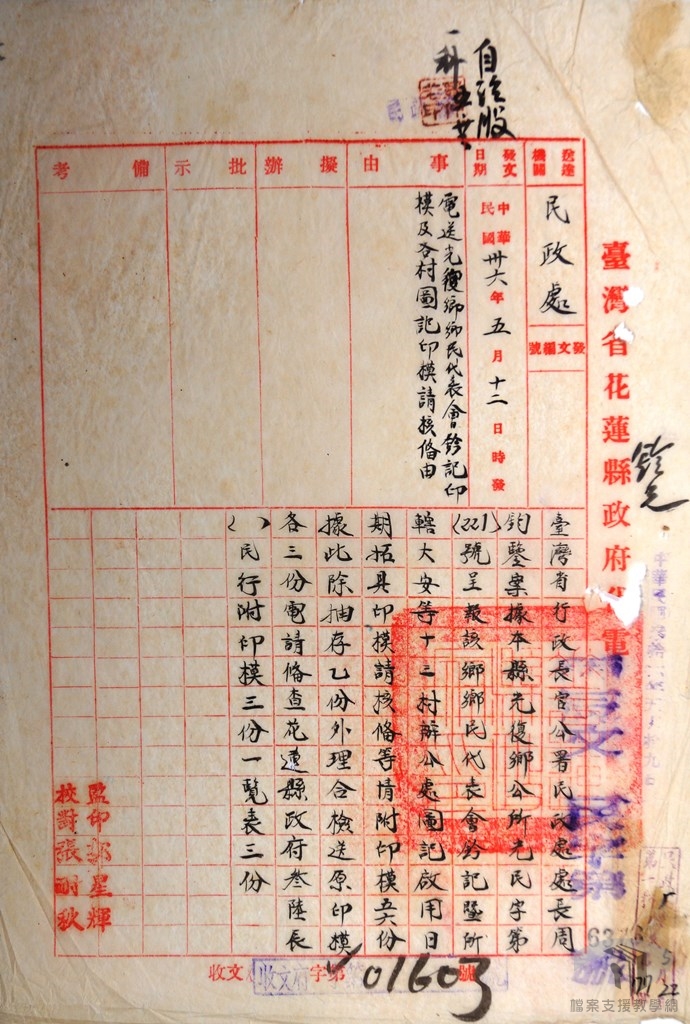 自治股
一科
臺灣省花蓮縣政府代電
送達機關
民政處
發文編號
發文日期
中華民國卅六年五月十二日時發
事由
電送光復鄉鄉民代表會鈐記印
模及各村圖記印模請核備由
擬辦
批示
備考
臺灣省行政長官公署民政處處長周
鈞鑒案據本縣光復鄉公所光民字第
(221)號呈報該鄉鄉民代表會鈐記暨所
轄大安等十三村辦公處圖記啟用日
期拓具印模請核備等情附印模五六份
據此除抽存乙份外理合檢送原印模
各三份電請備查花蓮縣政府叁陸辰
()民行附印模三份一覽表三份
監印郭星輝
校對張耐秋
收文 字第 01603 號
檔案支援教學網